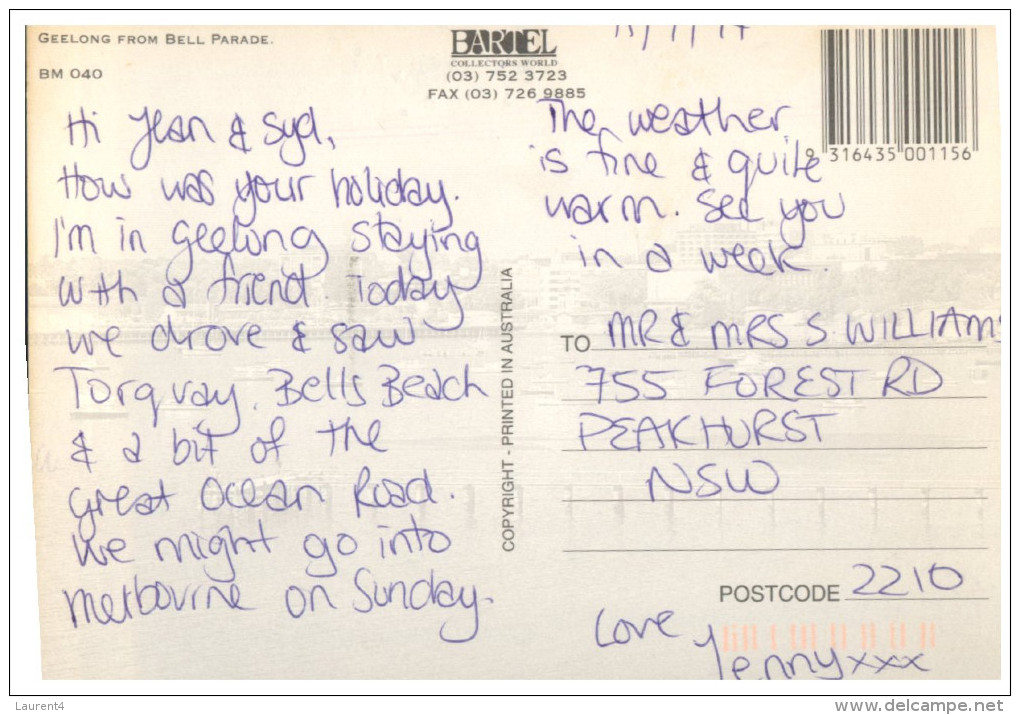 GEELONG FROM BELL PARADE.
BM 040
BARTEL
COLLECTORS WORLD
(03) 752 3723
FAX (03) 726 9885
9 316435 001156
Hi Jean & Syd,
How was your holiday.
I'm in Geelong staying
with a friend. Today
we drove & saw
Torquay, Bells Beach
& a bit of the
Great Ocean Road.
We might go into
Melbourne on Sunday.
The weather
is fine & quite
warm. See you
in a week.
COPYRIGHT - PRINTED IN AUSTRALIA
TO MR & MRS S. WILLIAMS
755 FOREST RD
PEAKHURST
NSW
POSTCODE 2210
Love
Jenny xxx
Laurent4
www.delcampe.net